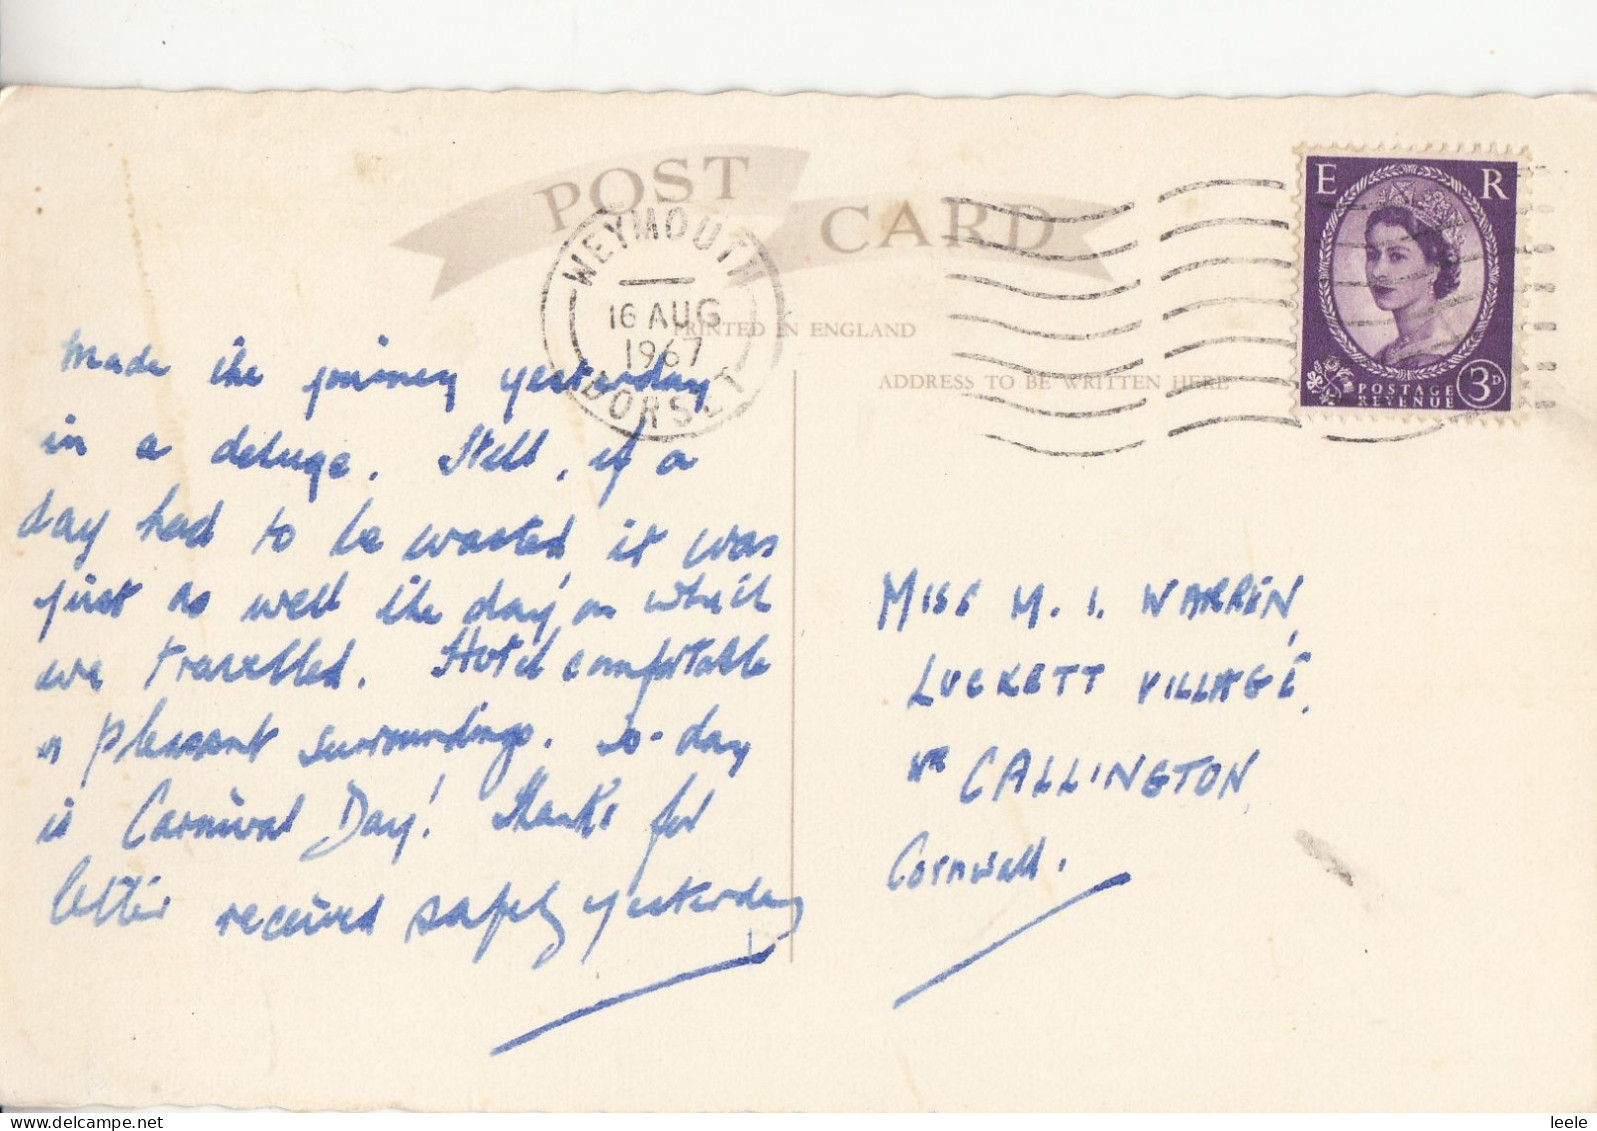 POST CARD
WEYMOUTH
16 AUG
1967
DORSET
PRINTED IN ENGLAND
ADDRESS TO BE WRITTEN HERE
E R
POSTAGE
REVENUE
3D
Made the journey yesterday
in a deluge. Still, if a
day had to be wasted, it was
just as well the day on which
we travelled. Hotel comfortable
& pleasant surroundings. To-day
is Carnival Day! Thanks for
letter received safely yesterday
MISS M. I. WARREN,
LUCKETT VILLAGE,
NR CALLINGTON,
Cornwall.
leele